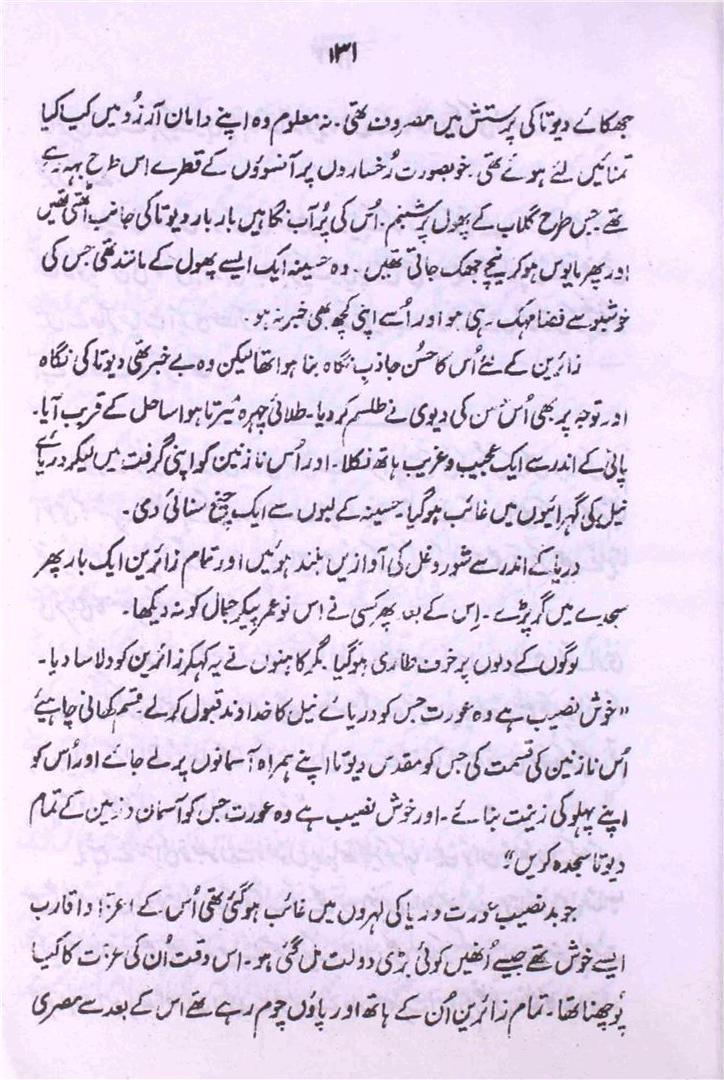 ۱۳۱
جھکائے دیوتا کی پرستش میں مصروف تھی۔ نہ معلوم وہ اپنے دامان آرزو میں کیا کیا
تمنائیں لئے ہوئے تھی۔ خوبصورت رُخساروں پر آنسوؤں کے قطرے اس طرح بہہ رہے
تھے۔ جس طرح گلاب کے پھول پر شبنم۔ اُس کی پُرآب نگاہیں بار بار دیوتا کی جانب اٹھتی تھیں
اور پھر مایوس ہو کر نیچے جھک جاتی تھیں۔ وہ حسینہ ایک ایسے پھول کے مانند تھی جس کی
خوشبو سے فضا مہک رہی ہو اور اُسے اپنی کچھ بھی خبر نہ ہو۔
زائرین کے لئے اُس کا حُسن جاذبِ نگاہ بنا ہوا تھا لیکن وہ بے خبر تھی دیوتا کی نگاہ
اور توجہ پر بھی اُس حسن کی دیوی نے طلسم کر دیا۔ طلائی چہرہ تیرتا ہوا ساحل کے قریب آیا۔
پانی کے اندر سے ایک عجیب و غریب ہاتھ نکلا۔ اور اُس نازنین کو اپنی گرفت میں لیکر دریائے
نیل کی گہرائیوں میں غائب ہو گیا۔ حسینہ کے لبوں سے ایک چیخ سنائی دی۔
دریا کے اندر سے شور و غل کی آوازیں بلند ہوئیں اور تمام زائرین ایک بار پھر
سجدے میں گر پڑے۔ اس کے بعد پھر کسی نے اس نو عمر پیکر جمال کو نہ دیکھا۔
لوگوں کے دلوں پر خوف طاری ہو گیا۔ مگر کاہنوں نے یہ کہکر زائرین کو دلاسا دیا۔
"خوش نصیب ہے وہ عورت جس کو دریائے نیل کا خداوند قبول کرلے قسم کھانی چاہیئے
اُس نازنین کی قسمت کی جس کو مقدس دیوتا اپنے ہمراہ آسمانوں پر لے جائے اور اُس کو
اپنے پہلو کی زینت بنائے۔ اور خوش نصیب ہے وہ عورت جس کو آسمان و زمین کے تمام
دیوتا سجدہ کریں"
جو بدنصیب عورت دریا کی لہروں میں غائب ہو گئی تھی اُس کے اعزا و اقارب
ایسے خوش تھے جیسے اُنھیں کوئی بڑی دولت مل گئی ہو۔ اس وقت اُن کی عزت کا کیا
پُوچھنا تھا۔ تمام زائرین اُن کے ہاتھ اور پاؤں چوم رہے تھے اس کے بعد سے مصری